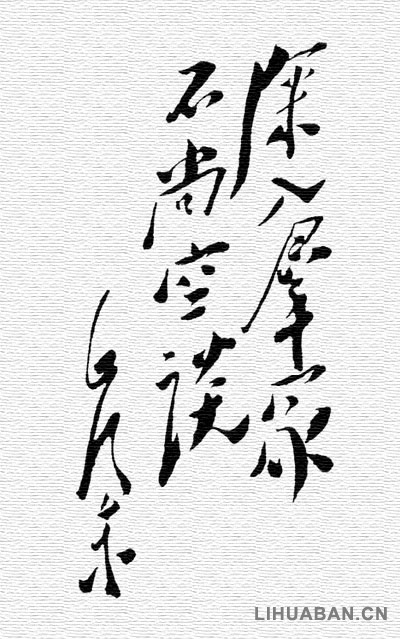 深入群众
不尚空谈
毛泽东
LIHUABAN.CN